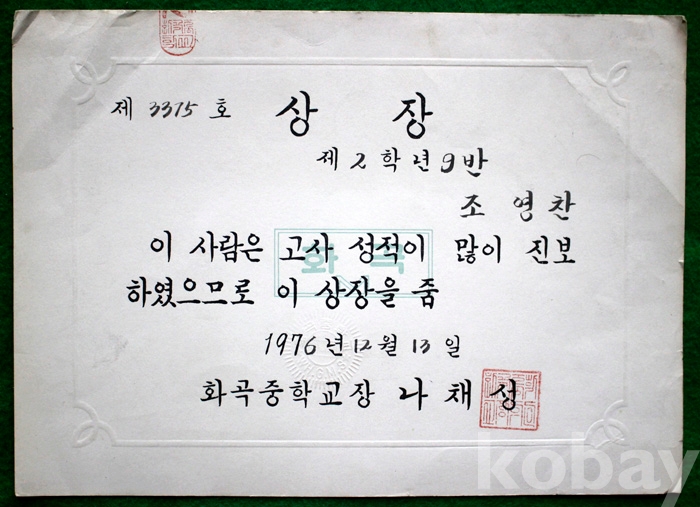 제 3375 호 상 장
제 2 학년 9 반
조 영 찬
이 사람은 고사 성적이 많이 진보
하였으므로 이 상장을 줌
화 곡
1976 년 12 월 13 일
화곡중학교장 나 채 성
kobay